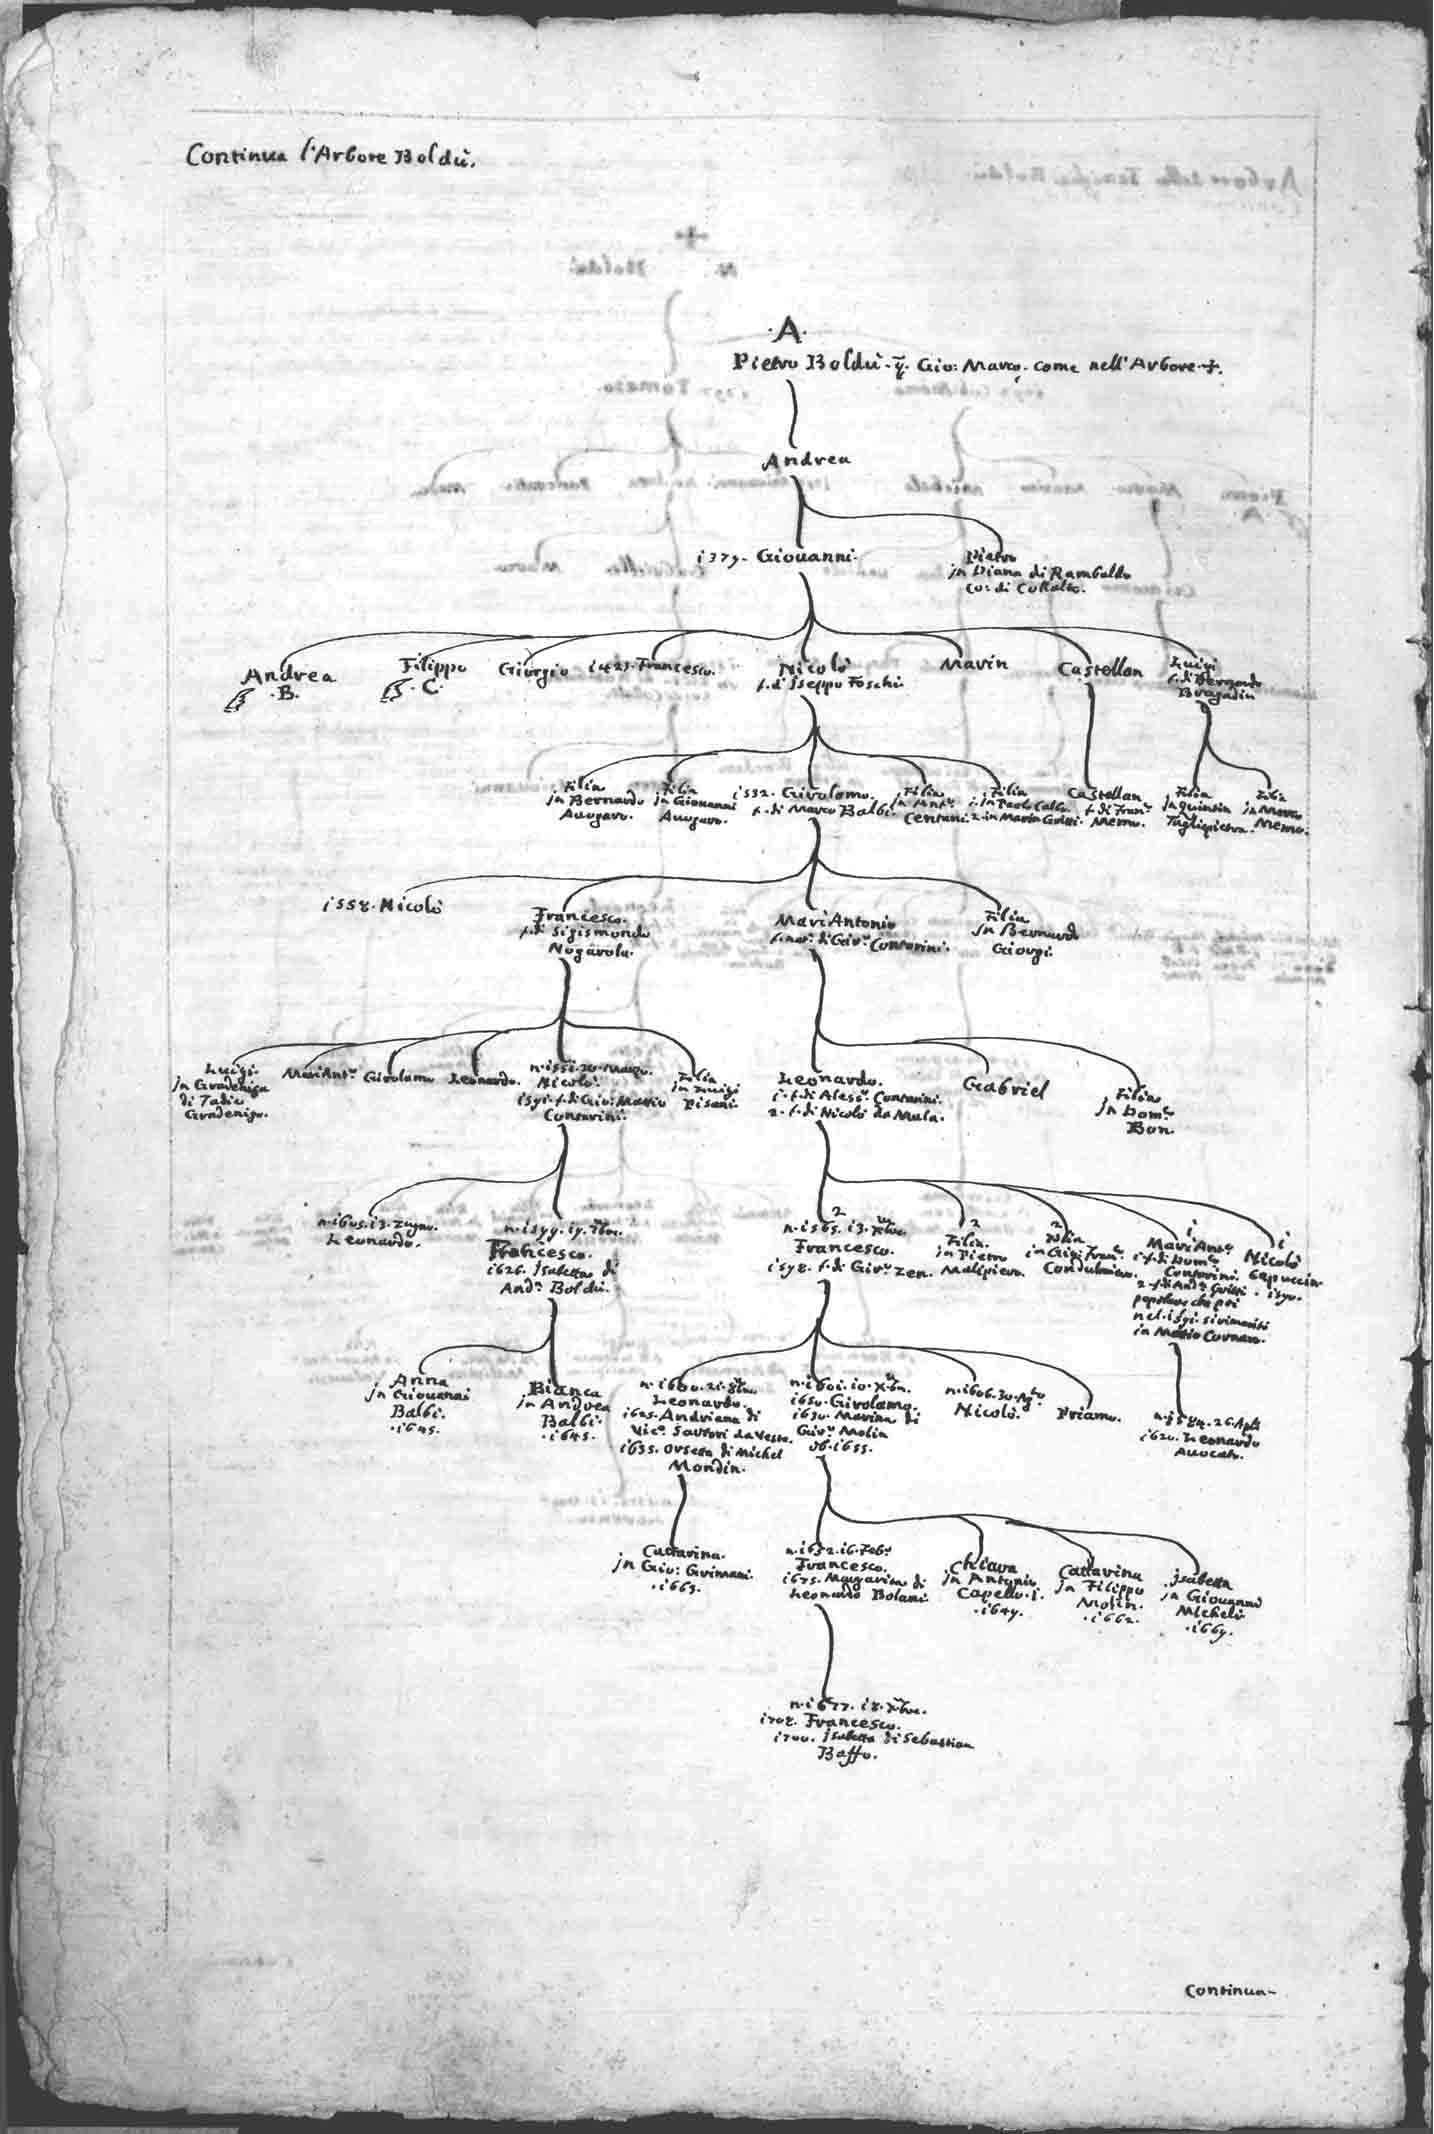 Continua l'Arbore Boldù.
·A·
Pietro Boldù · q. Gio: Marco · come nell'Arbore ·+·
Andrea
i379 · Giouanni ·
Pietro
jn Diana di Rambaldo
Co: di Collalto.
Andrea
· B.
Filippo
· C.
Giorgio
i423 · Francesco.
Nicolò
f. di Jseppo Foschi.
Marin
Castellan
Luigi
f. di Bernardo
Bragadin
Filia
jn Bernardo
Auogaro.
Filia
jn Giouanni
Auogaro.
i532 · Girolamo.
f. di Marco Balbi.
Filia
jn Ant.o
Centani.
Filia
i. jn Paolo Calbo
2. in Marin Gritti.
Castellan
f. di Fran.o
Memo.
Filia
jn Quintin
Tagliapietra.
Filia
jn Marco
Memo.
i558 · Nicolò
Francesco.
f. di Sigismondo
Nogarola.
Mari Antonio
f. nat: di Gir.o Contarini.
Filia
jn Bernardo
Giorgi.
Luigi.
jn Gradeniga
di Tadio
Gradenigo.
Mari Ant.o
Girolamo
Leonardo.
n. i55i · 20 · Marzo.
Nicolò.
i59i · f. di Gio: Mattio
Contarini.
Filia
jn Luigi
Pisani.
Leonardo.
i · f. di Aless.o Contarini.
2 · f. di Nicolò da Mula.
Gabriel
Filia
jn Dom.o
Bon.
n · i605 · i3 · Zugno.
Leonardo.
n · i599 · i9 · 7bre.
Francesco.
i626 · Jsabetta di
And.a Boldù.
2
n · i565 · i3 · Xbre.
Francesco.
i598 · f. di Gir.o Zen.
2
Filia.
jn Pietro
Malipiero.
2
Filia
in Gigi Fran.o
Condulmier.
i
Mari Ant.o
i · f. di Dom.o
Contarini.
2 · f. di And.a Gritti
popolare che poi
nel · i59i · si rimaritò
in Mattio Cornaro.
i
Nicolò
Capuccin
· i590.
Anna
jn Giouanni
Balbi.
· i645.
Bianca
jn Andrea
Balbi.
· i645.
n · i600 · 2i · 8bre.
Leonardo.
i625 · Andriana di
Vic.o Sartori da Veste.
i635 · Orsetta di Michel
Mondin.
n · i60i · i0 · Xbre.
i650 · Girolamo.
i630 · Marina di
Gir.o Molin
ob. i655.
n · i606 · 30 · Ag.to
Nicolò.
Priamo.
n · i584 · 26 · Aple
i620 · Leonardo
Auocato.
Cattarina.
jn Gio: Grimani.
· i663.
n. i652 · i6 · Feb.o
Francesco.
i675 · Margarita di
Leonardo Bolani.
Chiara
jn Antonio
Capello · i.
· i649.
Cattarina
jn Filippo
Molin.
· i662.
Jsabetta
jn Giouanni
Michelì
· i669.
n · i677 · i8 · Xbre.
i708 · Francesco.
i700 · Jsabetta di Sebastian
Baffo.
Continua-